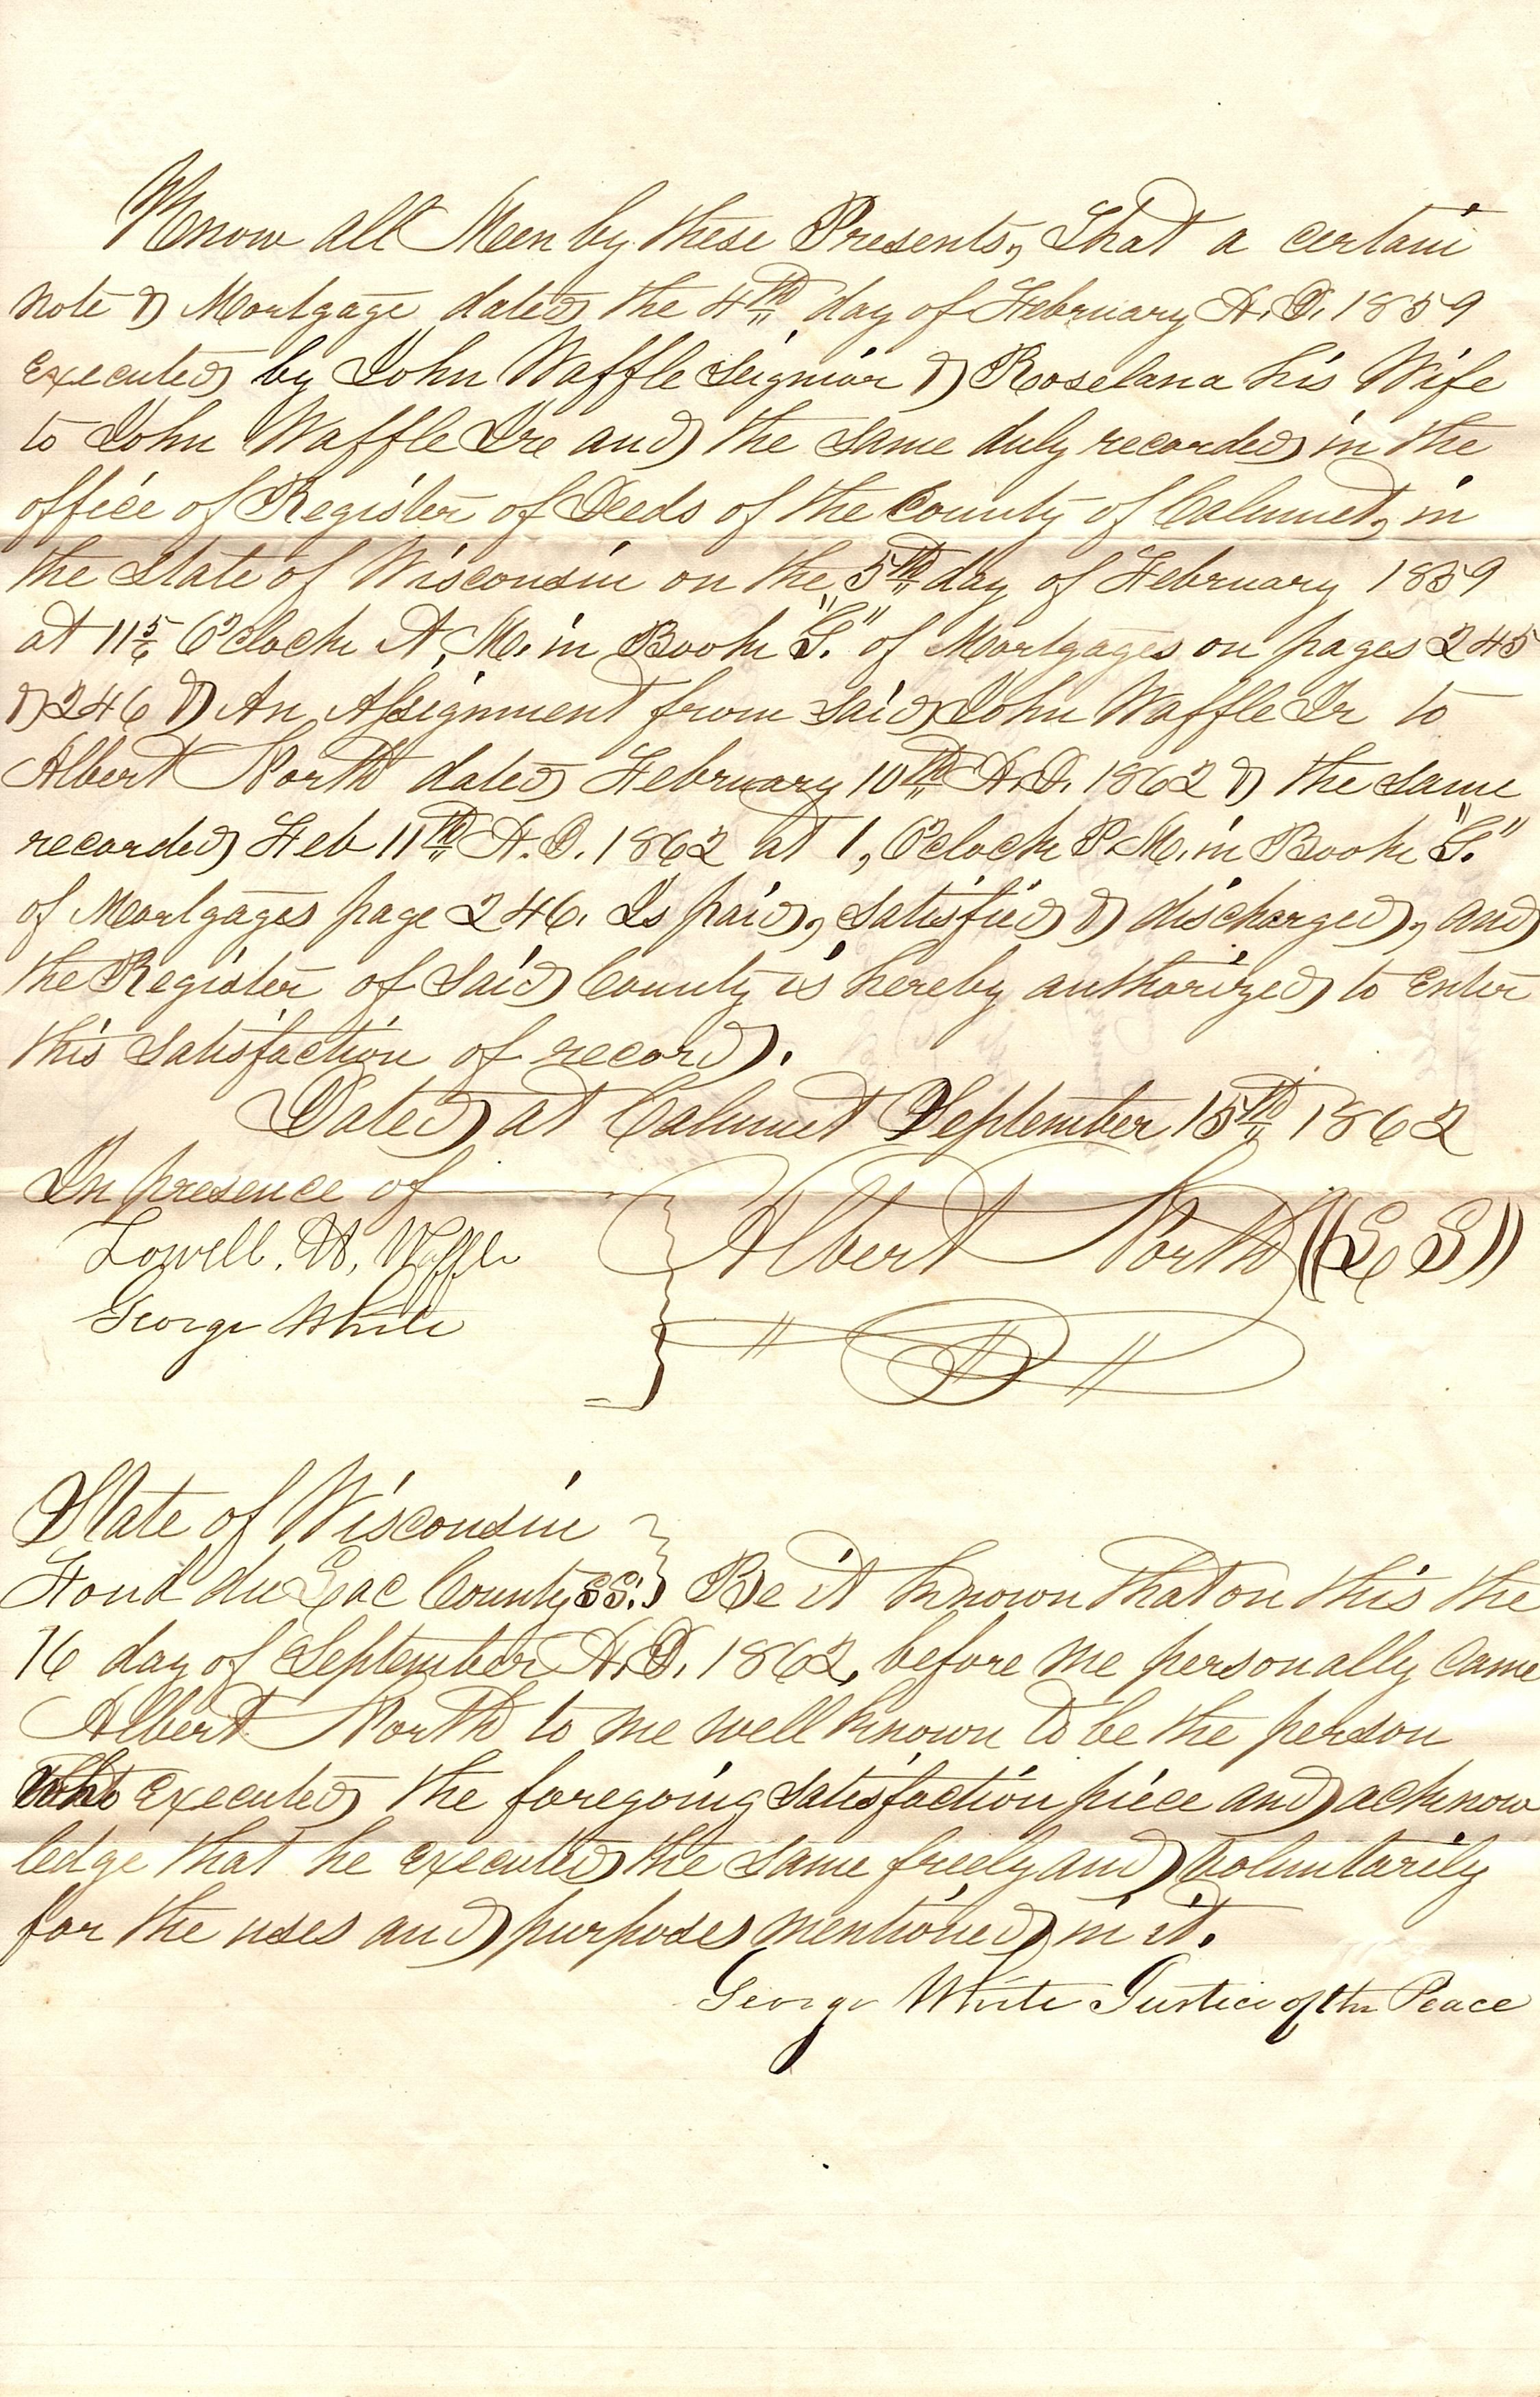 Know all Men by these Presents, That a certain
Note & Mortgage dated the 4th day of February A.D. 1859
Executed by John Waffle Seignior & Roselana his Wife
to John Waffle Jre and the same duly recorded in the
office of Register of Deeds of the County of Calumet, in
the State of Wisconsin on the 5th day of February 1859
at 11 5/6 O'clock A.M. in Book "G." of Mortgages on pages 245
& 246 & An Assignment from said John Waffle Jr to
Albert North dated February 10th A.D. 1862 & the same
recorded Feb 11th A.D. 1862 at 1, O'clock P.M. in Book "G."
of Mortgages page 246. Is paid, satisfied & discharged, and
the Register of said County is hereby authorized to Enter
this satisfaction of record.
Dated at Calumet September 15th 1862
In presence of
Lowell. H. Waffle
George White
Albert North ((L S))
State of Wisconsin
Fond du Lac County SS. Be it known that on this the
16 day of September A.D. 1862, before me personally came
Albert North to me well known to be the person
Who Executed the foregoing satisfaction piece and acknow
ledge that he executed the same freely and voluntarily
for the uses and purposes mentioned in it.
George White Justice of the Peace